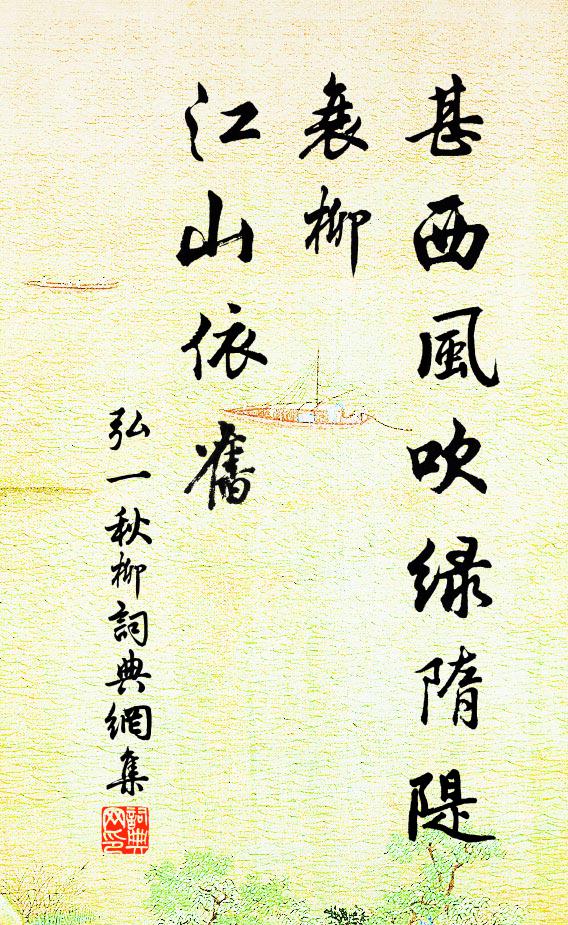 甚西風吹緑隋隄
衰柳
江山依舊
弘一秋柳詞典網集
詞典网印